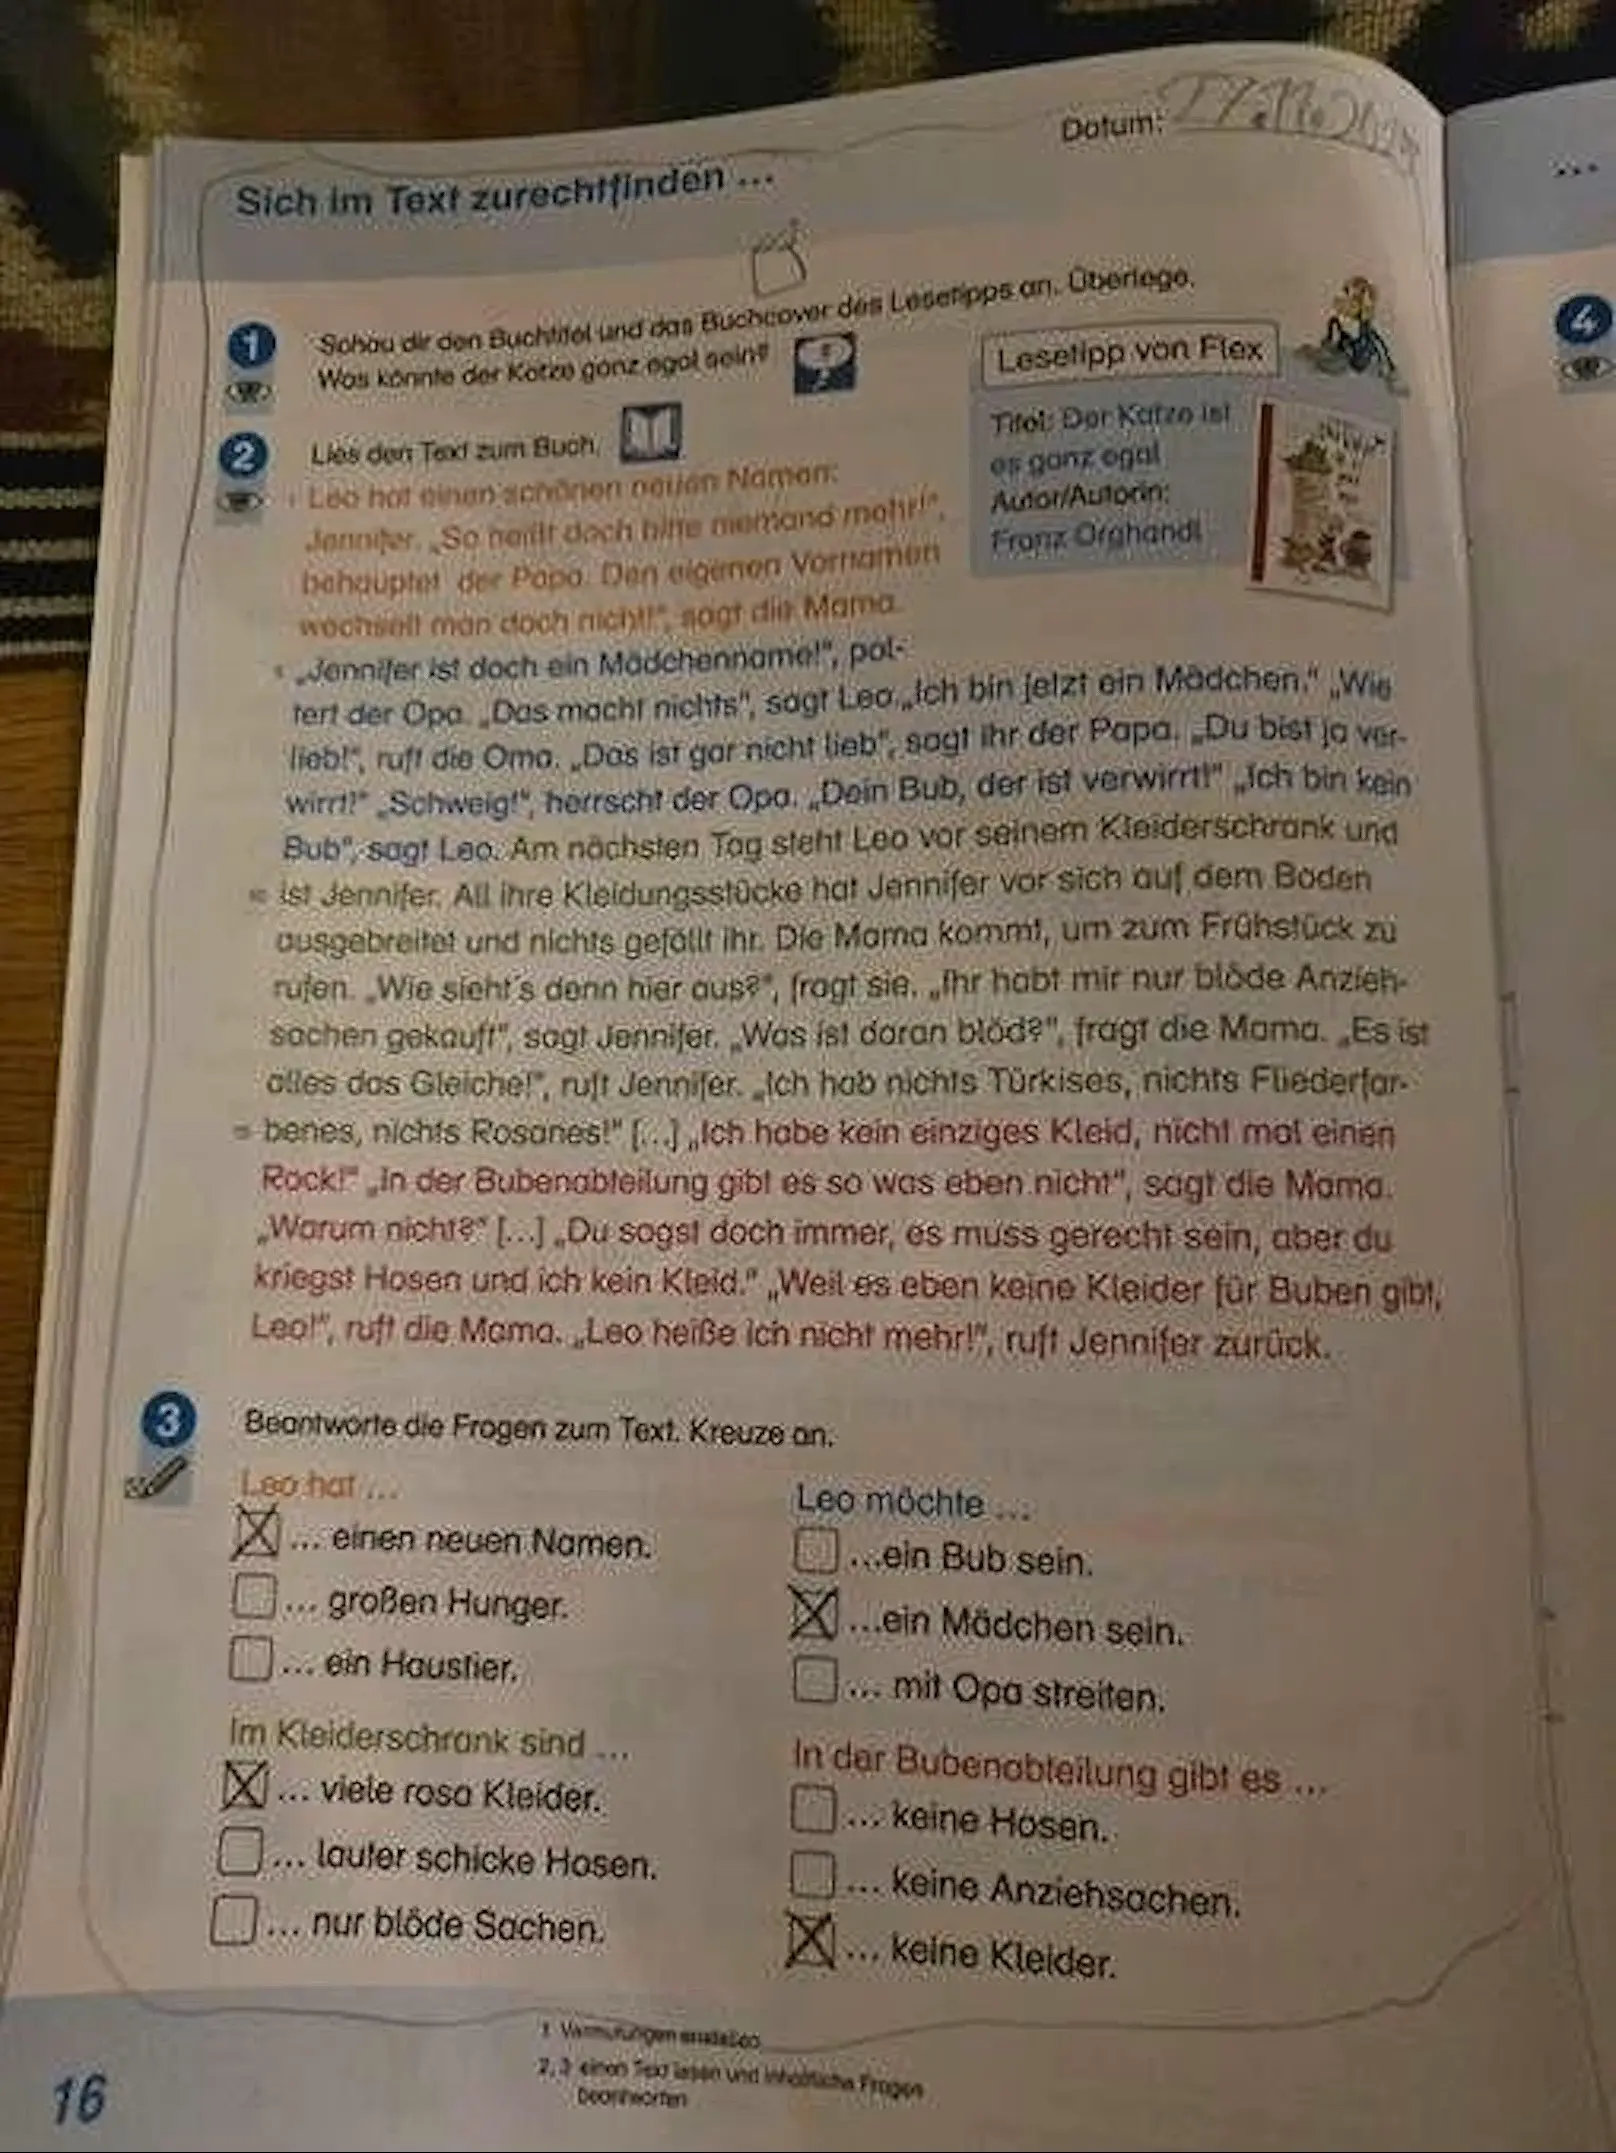 Datum:
Sich im Text zurechtfinden ...
1 Schau dir den Buchtitel und das Buchcover des Lesetipps an. Überlege.
Was könnte der Katze ganz egal sein?
Lesetipp von Flex
Titel: Der Katze ist
es ganz egal
Autor/Autorin:
Franz Orghandl
2 Lies den Text zum Buch.
Leo hat einen schönen neuen Namen:
Jennifer. „So heißt doch bitte niemand mehr!“,
behauptet der Papa. Den eigenen Vornamen
wechselt man doch nicht!“, sagt die Mama.
„Jennifer ist doch ein Mädchenname!“, pol-
tert der Opa. „Das macht nichts“, sagt Leo. „Ich bin jetzt ein Mädchen.“ „Wie
lieb!“, ruft die Oma. „Das ist gar nicht lieb“, sagt ihr der Papa. „Du bist ja ver-
wirrt!“ „Schweig!“, herrscht der Opa. „Dein Bub, der ist verwirrt!“ „Ich bin kein
Bub“, sagt Leo. Am nächsten Tag steht Leo vor seinem Kleiderschrank und
10 ist Jennifer. All ihre Kleidungsstücke hat Jennifer vor sich auf dem Boden
ausgebreitet und nichts gefällt ihr. Die Mama kommt, um zum Frühstück zu
rufen. „Wie sieht's denn hier aus?“, fragt sie. „Ihr habt mir nur blöde Anzieh-
sachen gekauft“, sagt Jennifer. „Was ist daran blöd?“, fragt die Mama. „Es ist
alles das Gleiche!“, ruft Jennifer. „Ich hab nichts Türkises, nichts Fliederfar-
15 benes, nichts Rosanes!“ [...] „Ich habe kein einziges Kleid, nicht mal einen
Rock!“ „In der Bubenabteilung gibt es so was eben nicht“, sagt die Mama.
„Warum nicht?“ [...] „Du sagst doch immer, es muss gerecht sein, aber du
kriegst Hosen und ich kein Kleid.“ „Weil es eben keine Kleider für Buben gibt,
Leo!“, ruft die Mama. „Leo heiße ich nicht mehr!“, ruft Jennifer zurück.
3 Beantworte die Fragen zum Text. Kreuze an.
Leo hat ...
... einen neuen Namen.
... großen Hunger.
... ein Haustier.
Leo möchte ...
...ein Bub sein.
...ein Mädchen sein.
... mit Opa streiten.
Im Kleiderschrank sind ...
... viele rosa Kleider.
... lauter schicke Hosen.
... nur blöde Sachen.
In der Bubenabteilung gibt es ...
... keine Hosen.
... keine Anziehsachen.
... keine Kleider.
1 Vermutungen anstellen
2, 3 einen Text lesen und inhaltliche Fragen
beantworten
16
...
4